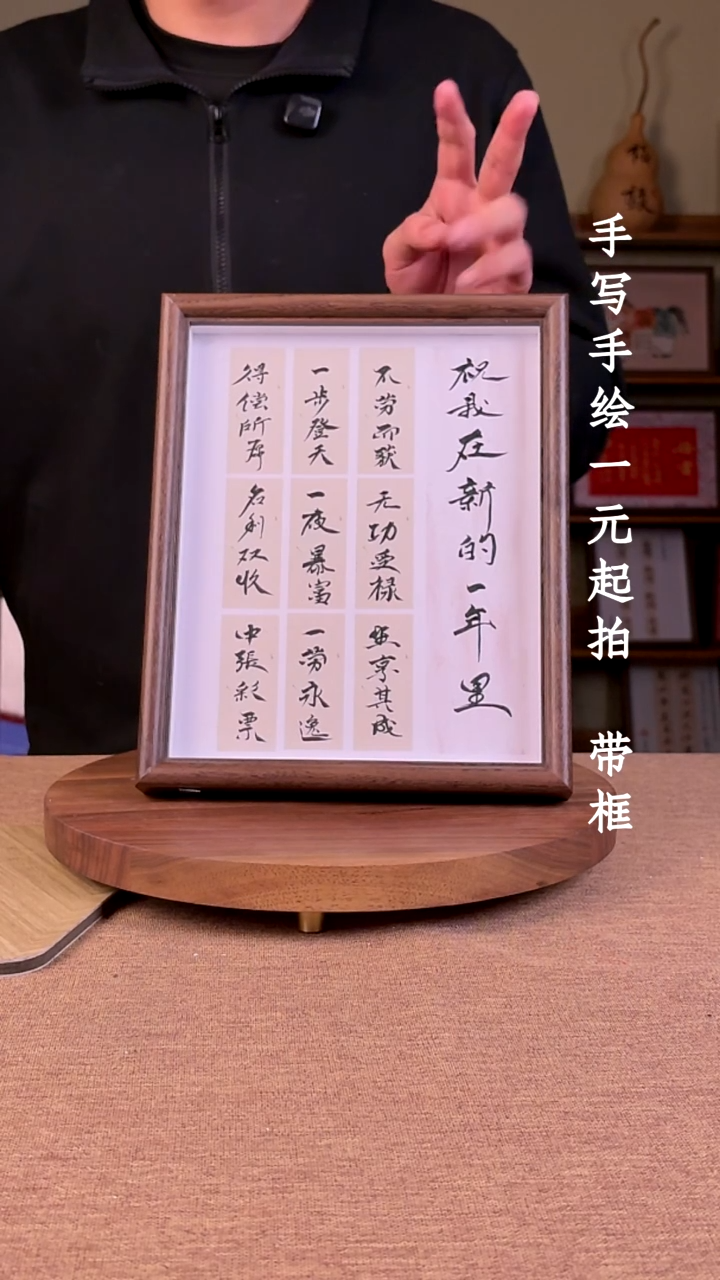 祝我在新的一年里
不劳而获
无功受禄
坐享其成
一步登天
一夜暴富
一劳永逸
得偿所愿
名利双收
中張彩票
手写手绘一元起拍 带框